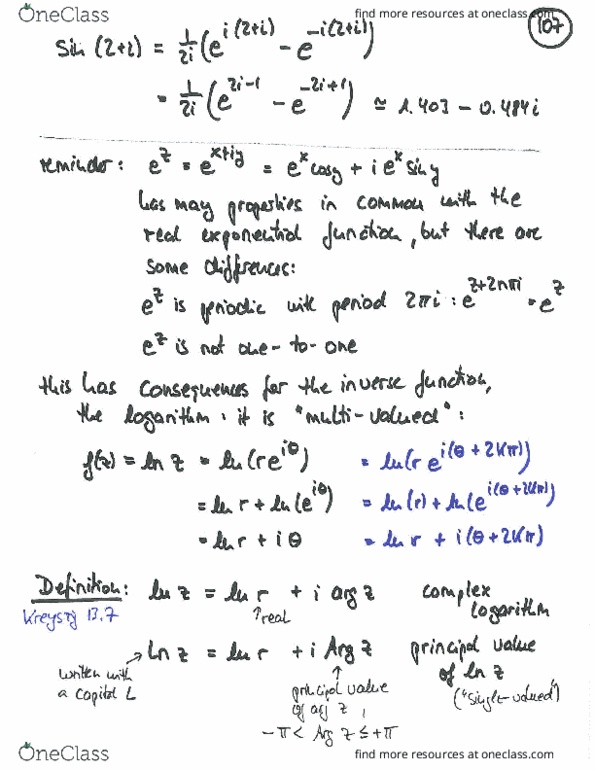 OneClass find more resources at oneclass.com
107
Sin (2+i) = 1/2i (e^{i(2+i)} - e^{-i(2+i)})
= 1/2i (e^{2i-1} - e^{-2i+1}) ≃ 1.403 - 0.484i
reminder: e^z = e^{x+iy} = e^x cosy + i e^x sin y
has may properties in common with the
real exponential function, but there are
some differences:
e^z is periodic with period 2πi : e^{z+2nπi} = e^z
e^z is not one-to-one
this has consequences for the inverse function,
the logarithm: it is "multi-valued":
f(z) = ln z = ln(re^{iθ}) = ln(r e^{i(θ+2kπ)})
= ln r + ln(e^{iθ}) = ln(r) + ln(e^{i(θ+2kπ)})
= ln r + i θ = ln r + i(θ+2kπ)
Definition: ln z = ln r + i arg z complex
logarithm
Kreyszig 13.7 ↑ real
Ln z = ln r + i Arg z principal value
of ln z
("single-valued")
written with
a capital L
principal value
of arg z,
-π < Arg z ≤ +π
OneClass find more resources at oneclass.com